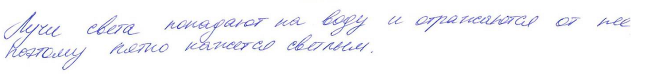 Лучи света попадают на воду и отражаются от нее
поэтому пятно кажется светлым.